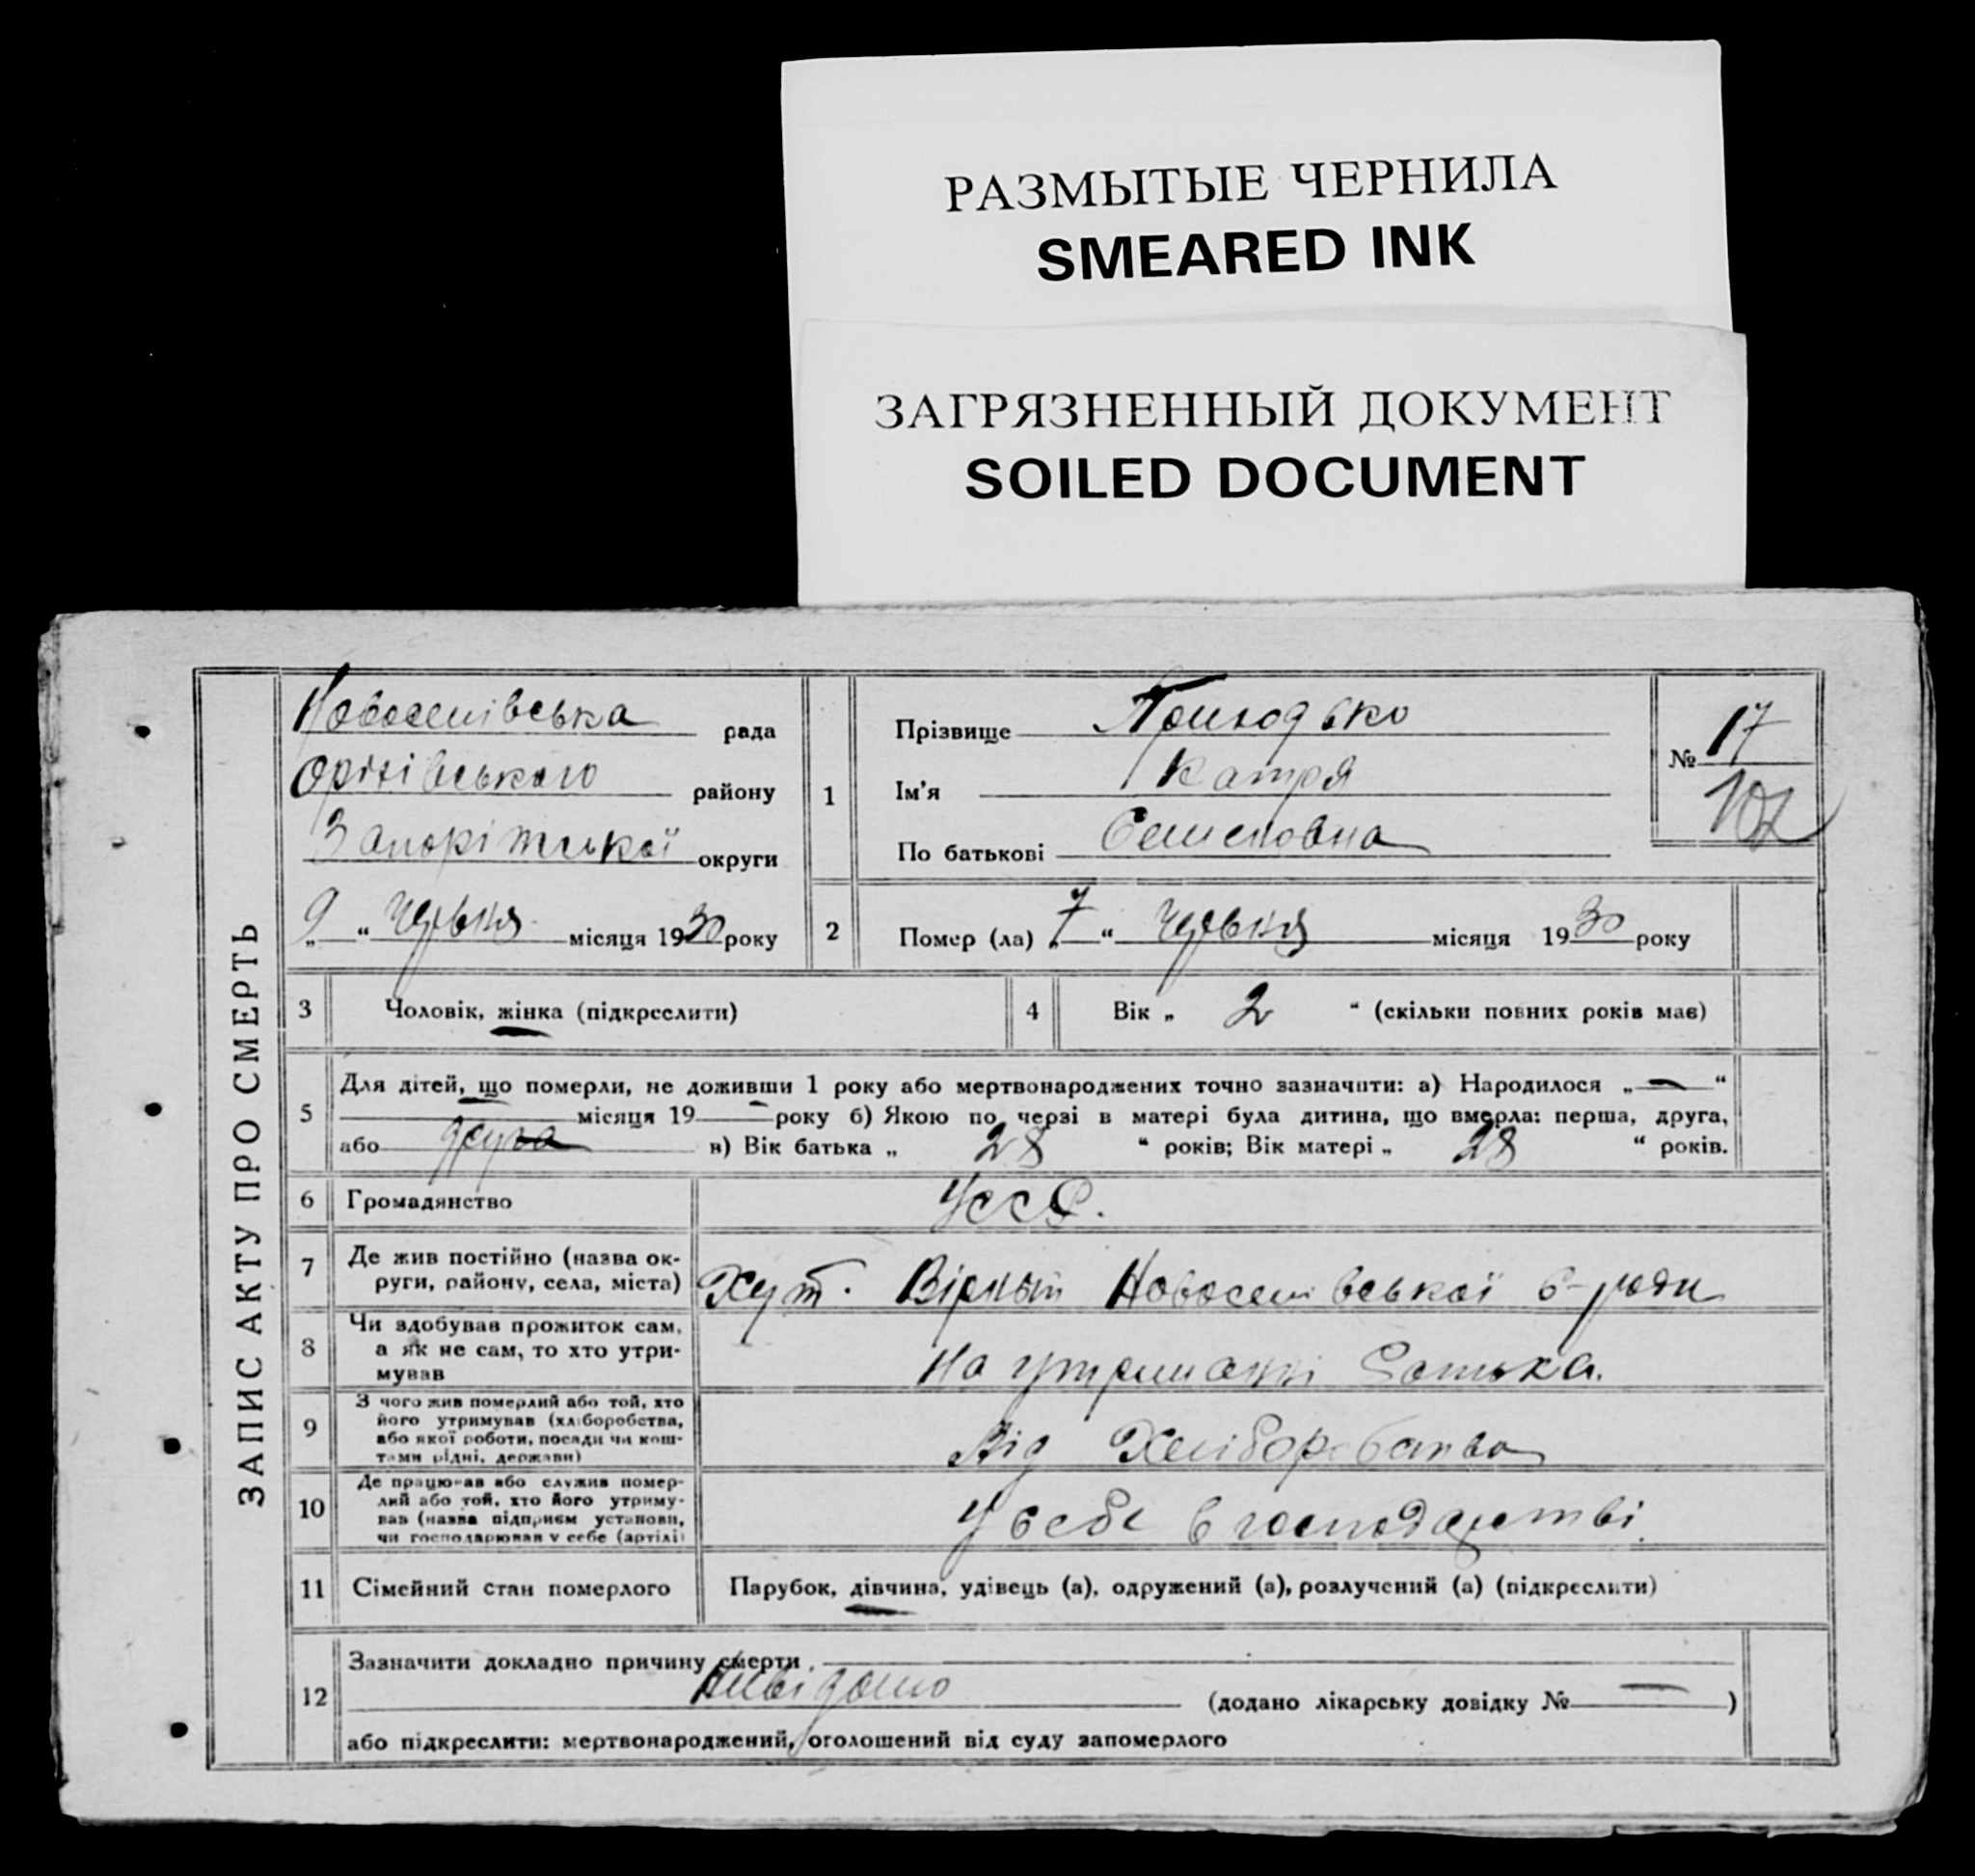 РАЗМЫТЫЕ ЧЕРНИЛА
SMEARED INK
ЗАГРЯЗНЕННЫЙ ДОКУМЕНТ
SOILED DOCUMENT
ЗАПИС АКТУ ПРО СМЕРТЬ
Новоселівська рада
Оріхівського району
Запоріжської округи
„9“ червня місяця 1930 року
1
Прізвище Приходько
Ім'я Катря
По батькові Семеновна
№ 17
102
2
Помер (ла) „7“ червня місяця 1930 року
3 Чоловік, жінка (підкреслити)
4 Вік „2“ (скільки повних років має)
5 Для дітей, що померли, не доживши 1 року або мертвонароджених точно зазначити: а) Народилося „—“
місяця 19 — року б) Якою по черзі в матері була дитина, що вмерла: перша, друга,
або друга в) Вік батька „28“ років; Вік матері „28“ років.
6 Громадянство УССР.
7 Де жив постійно (назва ок-
руги, району, села, міста) Хут. Вірный Новоселівської с-ради
8 Чи здобував прожиток сам,
а як не сам, то хто утри-
мував На утриманні батька.
9 З чого жив померлий або той, хто
його утримував (хліборобства,
або якої роботи, посади чи кош-
тами рідні, держави) Від Хліборобства
10 Де працював або служив помер-
лий або той, хто його утриму-
вав (назва підприєм установи,
чи господарював у себе (артілі) У себе в господарстві.
11 Сімейний стан померлого Парубок, дівчина, удівець (а), одружений (а), розлучений (а) (підкреслити)
12 Зазначити докладно причину смерти
Невідомо (додано лікарську довідку № — )
або підкреслити: мертвонароджений, оголошений від суду запомерлого